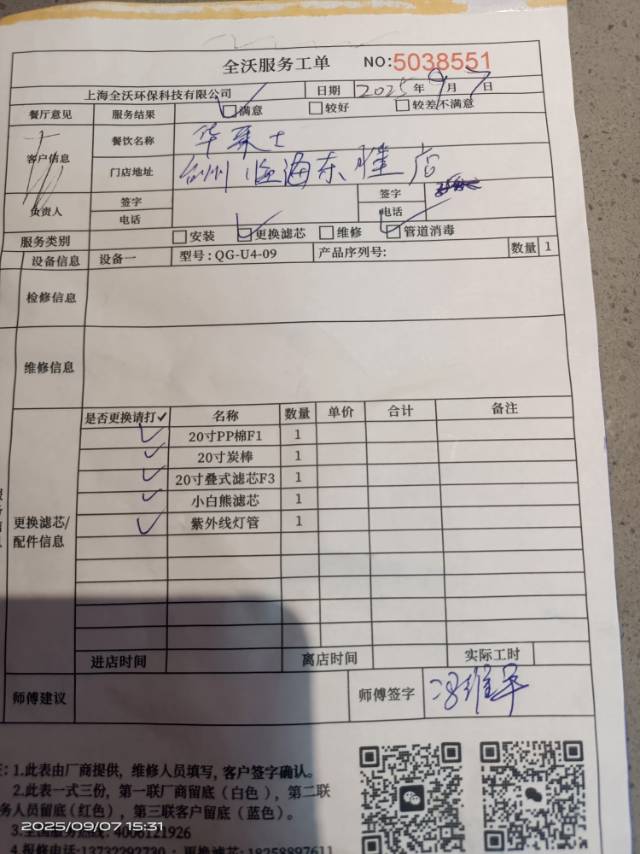 全沃服务工单 NO:5038551
上海全沃环保科技有限公司 日期 2025年9月7日
餐厅意见 服务结果 ☑满意 □较好 □较差不满意
客户信息 餐饮名称 华莱士
门店地址 台州临海东塍店
负责人 签字 签字
电话 电话
服务类别 □安装 ☑更换滤芯 □维修 ☑管道消毒
设备信息 设备一 型号:QG-U4-09 产品序列号: 数量 1
检修信息
维修信息
更换滤芯/配件信息 是否更换请打✓ 名称 数量 单价 合计 备注
✓ 20寸PP棉F1 1
✓ 20寸炭棒 1
✓ 20寸叠式滤芯F3 1
✓ 小白熊滤芯 1
✓ 紫外线灯管 1
进店时间 离店时间 实际工时
师傅建议 师傅签字
：1.此表由厂商提供, 维修人员填写, 客户签字确认。
2.此表一式三份, 第一联厂商留底（白色）, 第二联
务人员留底(红色）, 第三联客户留底（蓝色）。
2025/09/07 15:31
4.报修电话:13732292730 ; 更换滤芯:18258897611